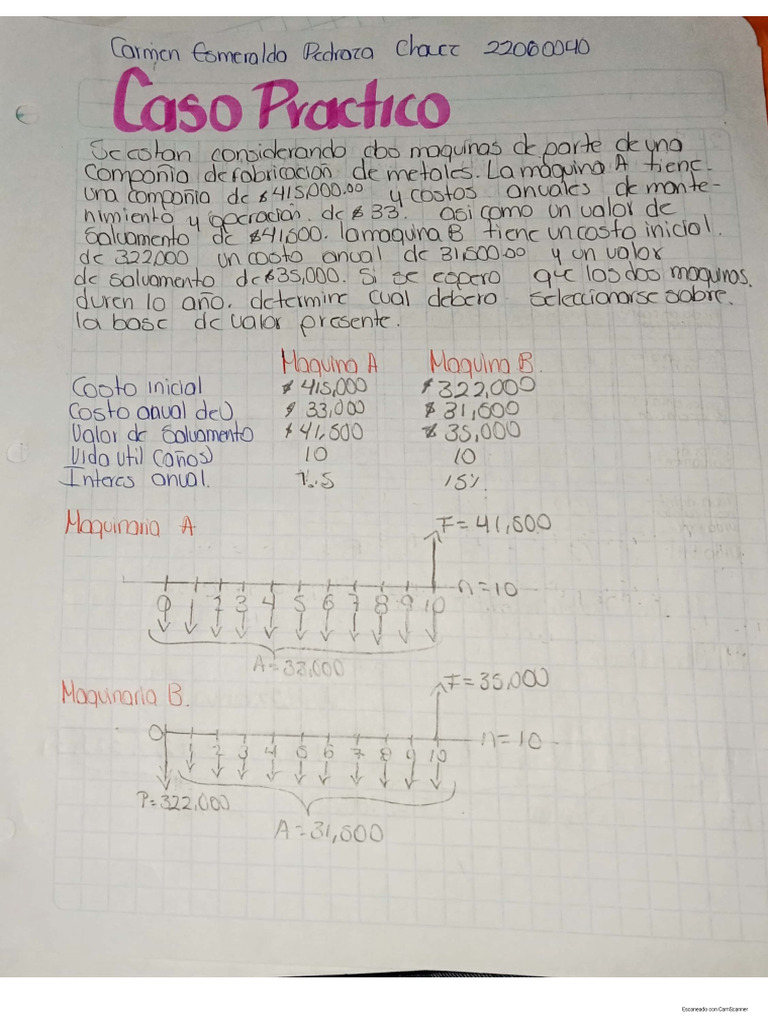 Carmen Esmeralda Pedraza Chavez 22060040
Caso Practico
Se estan considerando dos maquinas de parte de una
Compañia de fabricacion de metales. La máquina A tiene
una compañia de $415,000.00 y costos anuales de mante-
nimiento y operación. de $33. asi como un valor de
Salvamento de $41,500. la maquina B tiene un costo inicial.
de 322,000 un costo anual de 31,500.00 y un valor
de salvamento de $35,000. Si se espera que las dos maquinas.
duren lo año. determine cual debera seleccionarse sobre.
la base de valor presente.
Maquina A Maquina B.
Costo inicial $ 415,000 $ 322,000
Costo anual de $ 33,000 $ 31,500
Valor de Salvamento $ 41,500 $ 35,000
Vida util (años) 10 10
Interes anual. 15%
Maquinaria A
F= 41,500
n=10
0 1 2 3 4 5 6 7 8 9 10
A= 33,000
Maquinaria B.
F= 35,000
0
n= 10
1 2 3 4 5 6 7 8 9 10
P= 322,000
A= 31,500
Escaneado con CamScanner